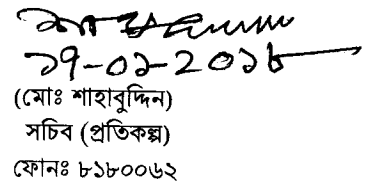 ১৭-০১-২০১৮
(মোঃ শাহাবুদ্দিন)
সচিব (প্রতিকল্প)
ফোনঃ ৮১৮০০৬২